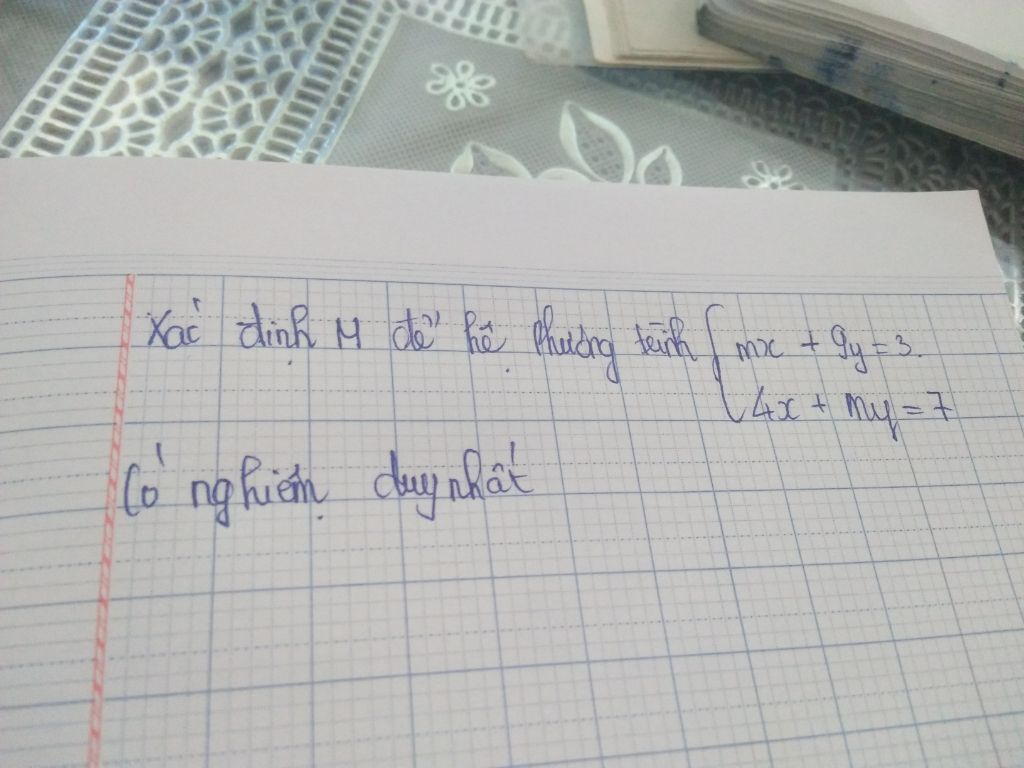 Xác định M để hệ phương trình { mx + 9y = 3.
4x + my = 7
Có nghiệm duy nhất